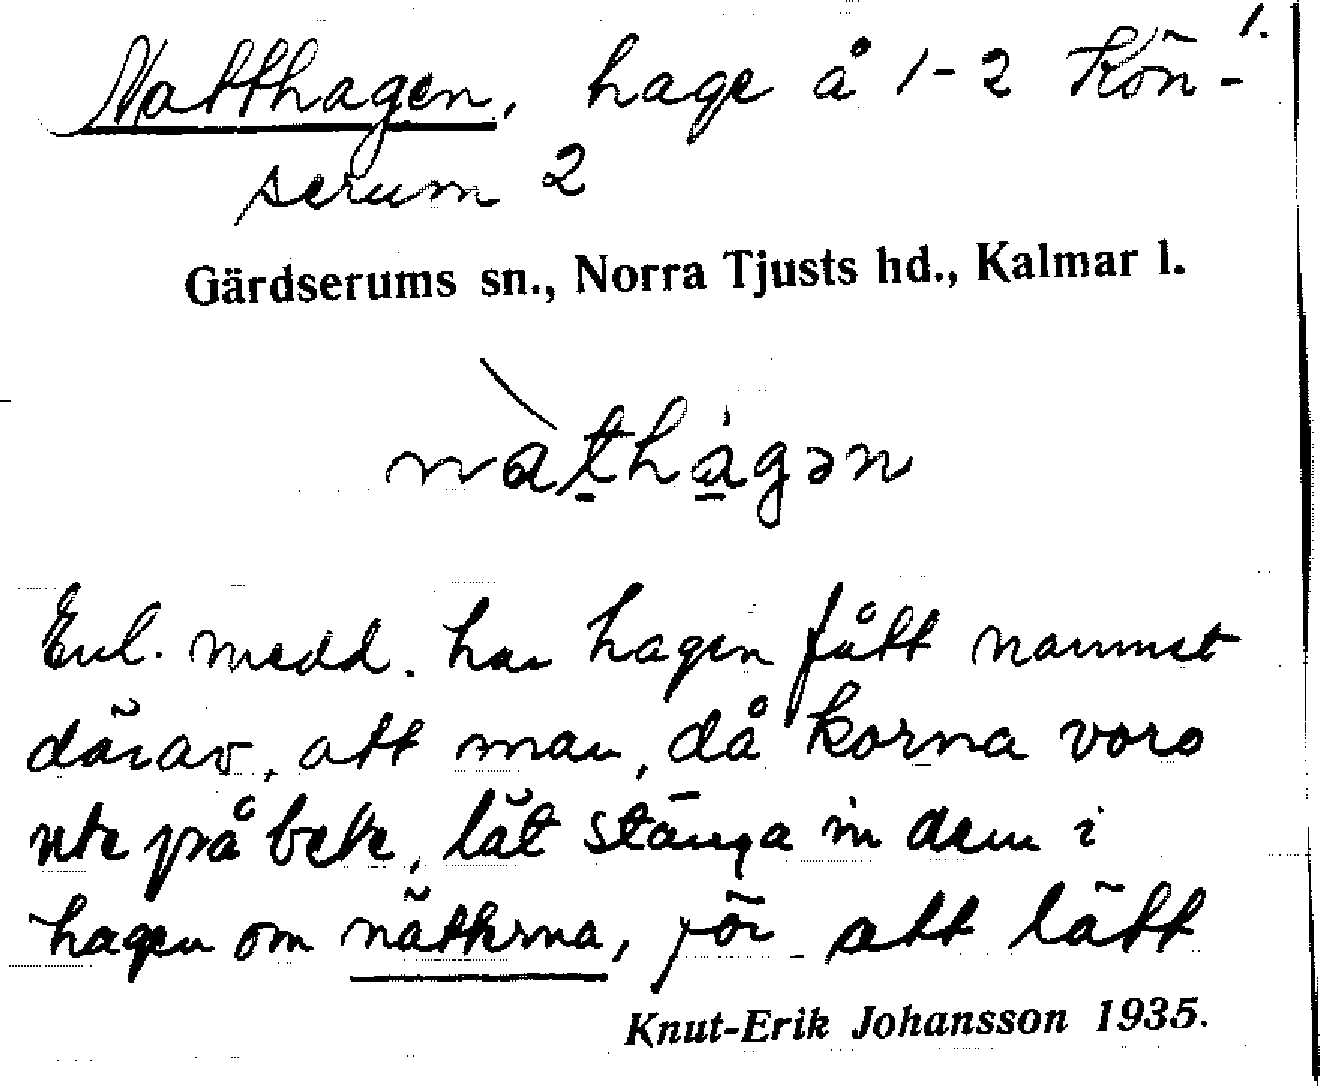 1.
Natthagen, hage å 1-2 Kön-
serum 2
Gärdserums sn., Norra Tjusts hd., Kalmar l.
nàt̲há̲gən
Enl. medd. har hagen fått namnet
därav, att man, då korna voro
ute på bete, lät stänga in dem i
hagen om nätterna, för att lätt
Knut-Erik Johansson 1935.